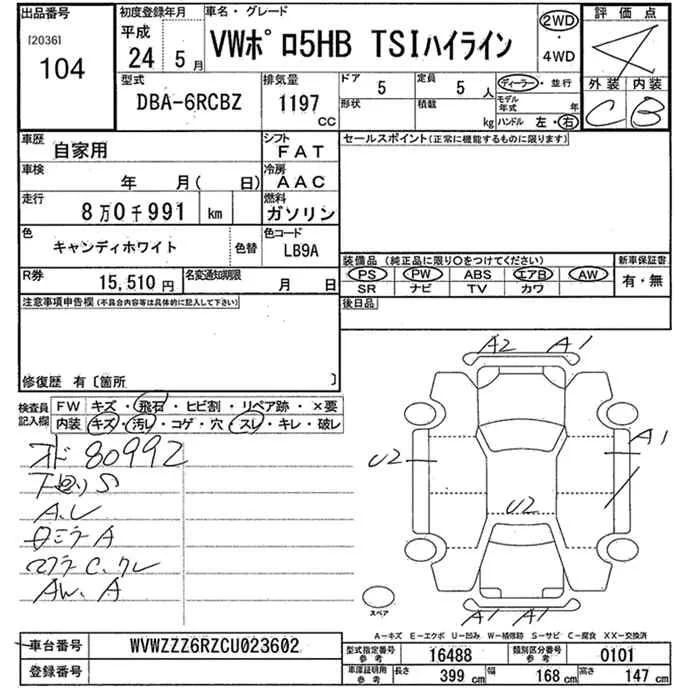 出品番号 初度登録年月 車名・グレード 2WD・4WD 評価点
[2036] 104 平成 24 5月 VWポロ5HB TSIハイライン 4
型式 排気量 ドア 定員 ディーラー・並行 外装 内装
DBA-6RCBZ 1197 CC 5 5人 モデル年式 年 C B
形状 積載 kg ハンドル 左・右
車歴 自家用 シフト FAT セールスポイント(正常に機能するものに限ります)
車検 年 月( 日) 冷房 AAC
走行 8万0千991 km 燃料 ガソリン
色 キャンディホワイト 色替 色コード LB9A
装備品(純正品に限り○をつけてください) 新車保証書
R券 15,510円 名変通知期限 月 日
PS PW ABS エアB AW 有・無
SR ナビ TV カワ
注意事項申告欄(不具合内容等は具体的に記入して下さい) 後日品
修復歴 有〔箇所 〕
検査員記入欄 FW キズ・飛石・ヒビ割・リペア跡・×要
内装 キズ・汚レ・コゲ・穴・スレ・キレ・破レ
オド 80992
下廻りS
A.U
ロミラーA
マフラC.クレ
AW.A
A2 A1
U2 A1
U2
A1 A1
スペア
A-キズ E-エクボ U-凹み W-補修跡 S-サビ C-腐食 XX-交換済
車台番号 WVWZZZ6RZCU023602 型式指定番号 参考 16488 類別区分番号 参考 0101
登録番号 車庫証明用 参考 長さ 399 cm 幅 168 cm 高さ 147 cm